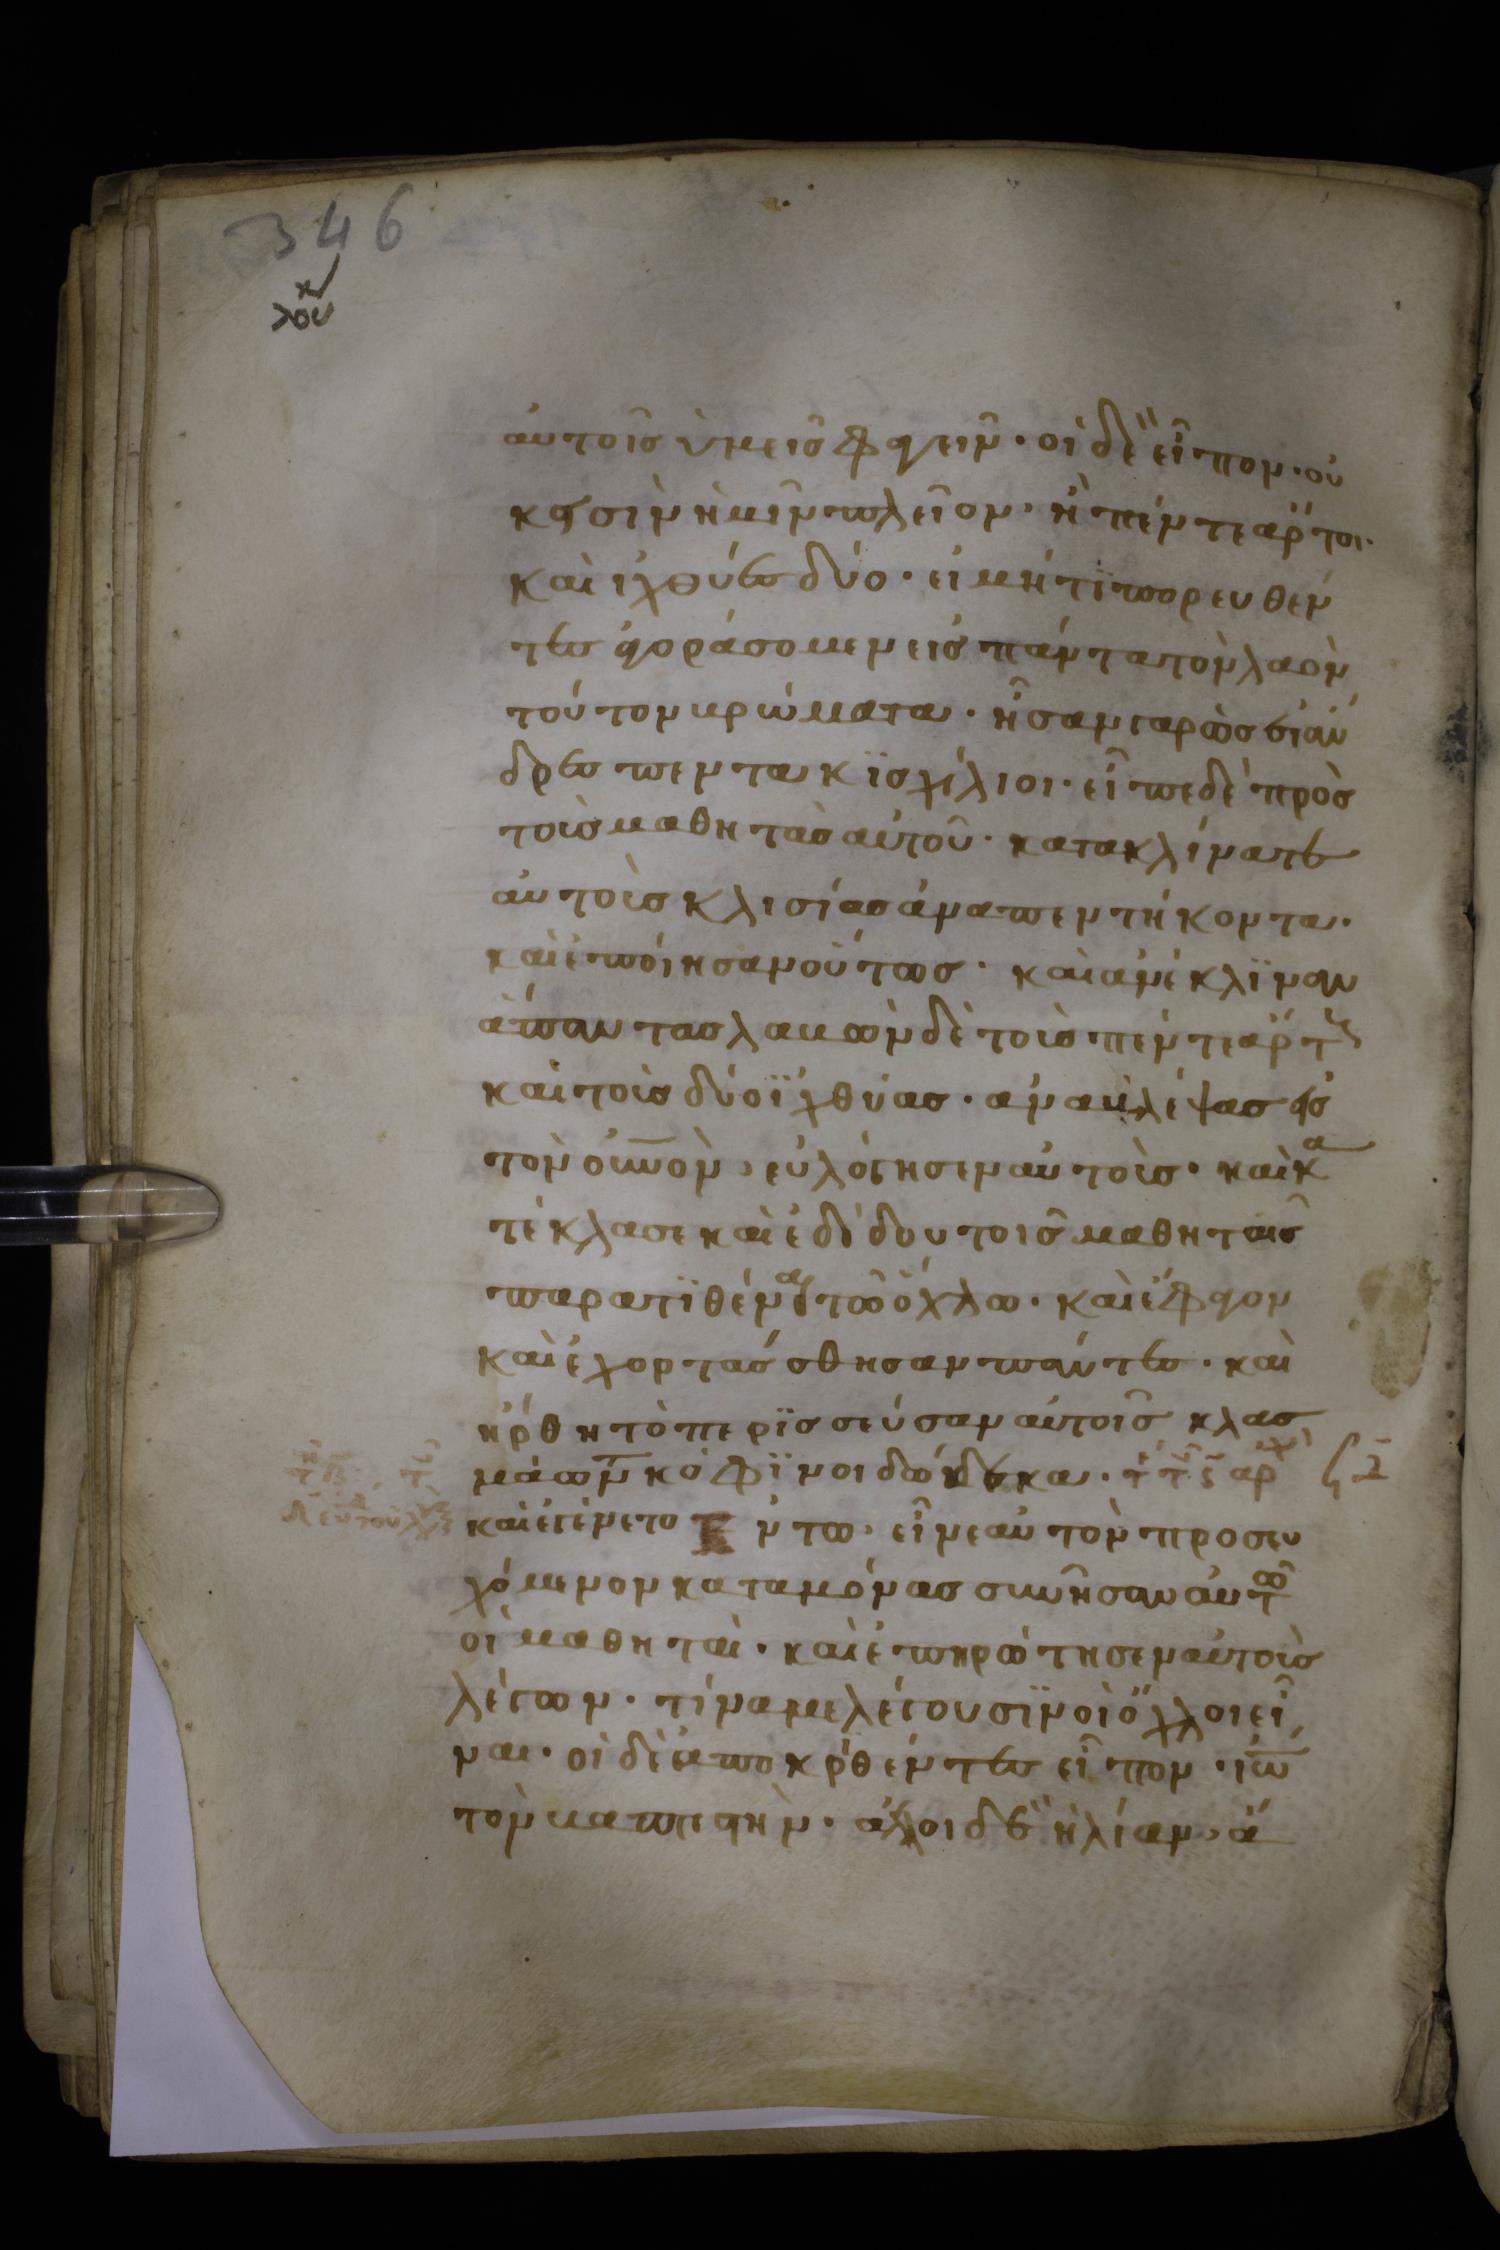 346
αὐτοῖς ὑμεῖς φαγεῖν· οἱ δὲ εἶπον· οὐ
κ εἰσὶν ἡμῖν πλεῖον· ἢ πέντε ἄρτοι·
καὶ ἰχθύες δύο· εἰ μήτι πορευθέν
τες ἀγοράσομεν εἰς πάντα τὸν λαὸν
τούτον βρώματα· ἦσαν γὰρ ὡσεὶ ἄν
δρες πεντακισχίλιοι· εἶπε δὲ πρὸς
τοὺς μαθητὰς αὐτοῦ· κατακλίνατε
αὐτοὺς κλισίας ἀνα πεντήκοντα·
καὶ ἐποίησαν οὕτως· καὶ ἀνέκλιναν
ἅπαντας λαβὼν δὲ τοὺς πέντε ἄρτους
καὶ τοὺς δύο ἰχθύας· ἀναβλέψας εἰς
τὸν οὐνὸν, εὐλόγησεν αὐτοὺς· καὶ κα
τέκλασε καὶ ἐδίδου τοῖς μαθηταῖς
παρατιθέναι τῶ ὄχλω· καὶ ἔφαγον
καὶ ἐχορτάσθησαν πάντες· καὶ
ἤρθη τὸ περισσεύσαν αὐτοῖς κλασ
μάτων κόφινοι δώδεκα·
καὶ ἐγένετο ἐν τῶ· εἶνε αὐτὸν προσευ
χόμενον καταμόνας συνῆσαν αὐτῶ
οἱ μαθηταὶ· καὶ ἐπηρώτησεν αὐτοὺς
λέγων· τίνα με λέγουσιν οἱ ὄχλοι εἶ
ναι· οἱ δὲ ἀποκριθέντες εἶπον· ἰω
τὸν βαπτιστὴν· ἄλλοι δὲ ἠλίαν, ἄ